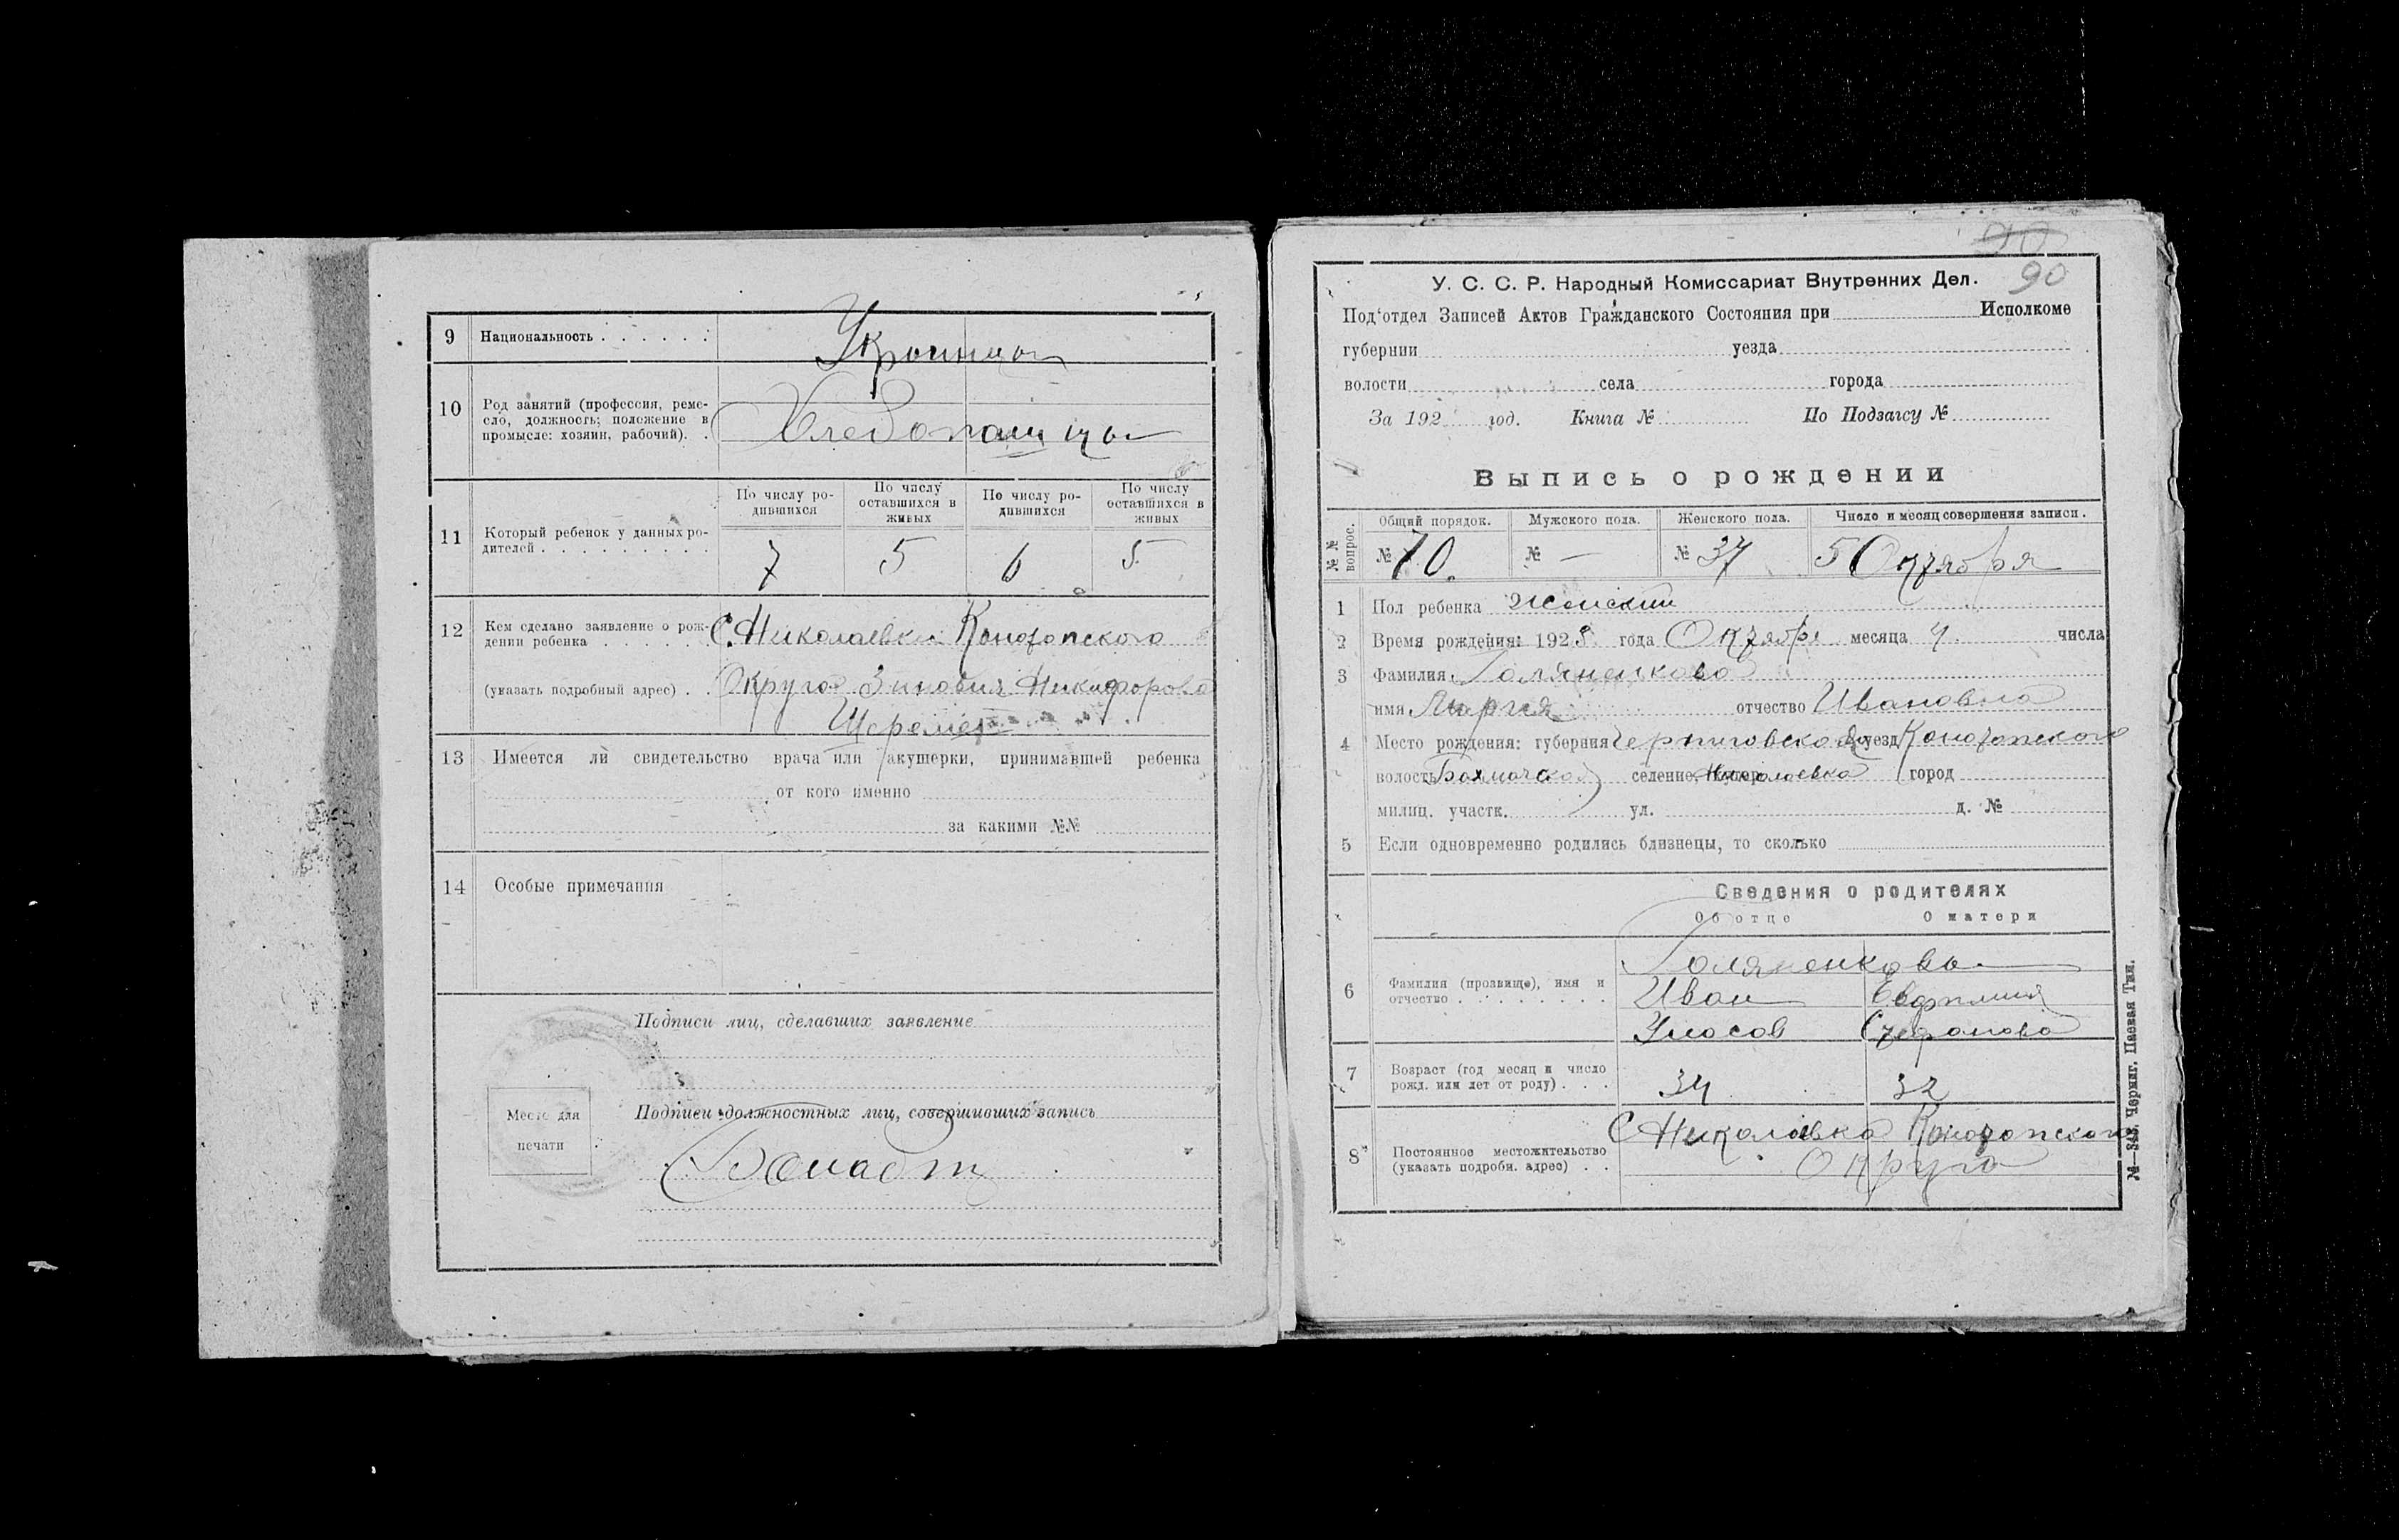 9 Национальность . . . . . . Украинцы
10 Род занятий (профессия, реме-
сло, должность; положение в
промысле: хозяин, рабочий). .
Хлебопашцы
11 Который ребенок у данных ро-
дителей . . . . . . . . .
По числу ро-
дившихся
По числу
оставшихся в
живых
По числу ро-
дившихся
По числу
оставшихся в
живых
7 5 6 5
12 Кем сделано заявление о рож-
дении ребенка . . . . . .
(указать подробный адрес) . .
С. Николаевки Конотопского
Округа Зиновия Никифорова
Шеремет
13 Имеется ли свидетельство врача или акушерки, принимавшей ребенка
от кого именно
за какими №№
14 Особые примечания
Подписи лиц, сделавших заявление
Место для
печати
Подписи должностных лиц, совершивших запись
90
90
У. С. С. Р. Народный Комиссариат Внутренних Дел.
Под‘отдел Записей Актов Гражданского Состояния при Исполкоме
губернии уезда
волости села города
За 192 год. Книга № По Подзагсу №
Выпись о рождении
№№ вопрос.
Общий порядок. Мужского пола. Женского пола. Число и месяц совершения записи.
№ 70. № — № 37 5 Октября
1 Пол ребенка Женский
2 Время рождения: 1925 года Октября месяца 4 числа
3 Фамилия Голяненкова
имя Мария отчество Ивановна
4 Место рождения: губерния Черниговская уезд Конотопского
волость Бахмачской селение Николаевка город
милиц. участк. ул. д. №
5 Если одновременно родились близнецы, то сколько
Сведения о родителях
Об отце О матери
6 Фамилия (прозвище), имя и
отчество . . . . . . . .
Голяненковы
Иван Евфимия
Стефанова
7 Возраст (год месяц и число
рожд. или лет от роду) . . .
34 32
8 Постоянное местожительство
(указать подробн. адрес) . .
С Николаевка Конотопского
Округа
№—343. Черниг. Паевая Тип.